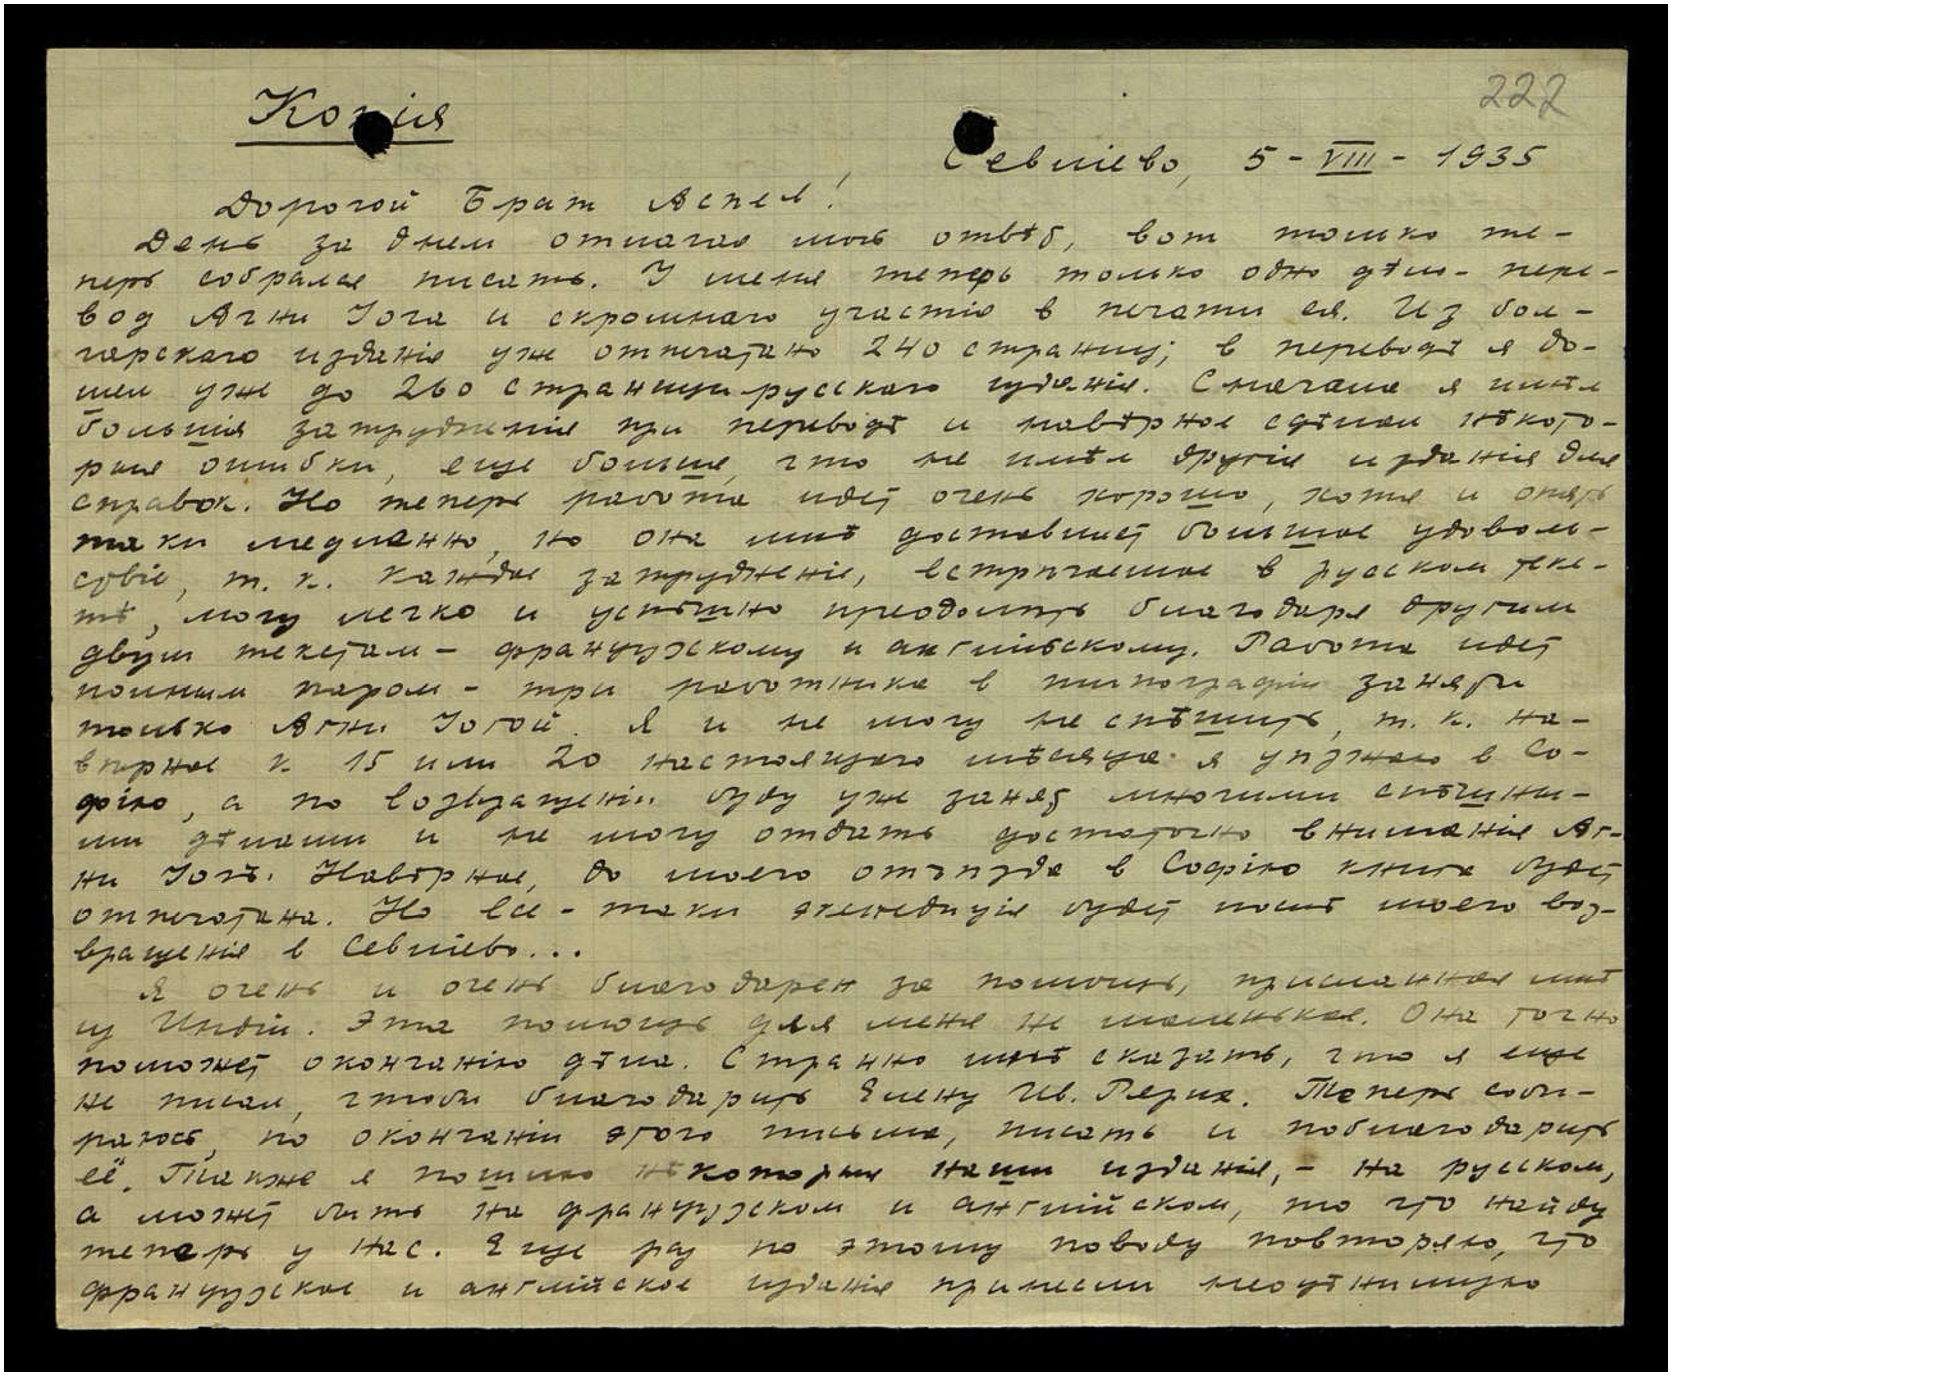 Копія
222
Севлiево, 5 - VIII - 1935
Дорогой Брат Аспел!
День за днем отлагаю мой отвѣт, вот только те-
перь собрался писать. У меня теперь только одно дѣло - пере-
вод Агни Йога и скромнаго участія в печати ея. Из бол-
гарскаго изданія уже отпечатано 240 страниц; в переводѣ я до-
шел уже до 260 страницы русскаго изданія. Сначала я имѣл
большія затрудненія при переводѣ и навѣрное сдѣлал нѣкото-
рыя ошибки, еще больше, что не имѣл другія изданія для
справок. Но теперь работа идет очень хорошо, хотя и опять
таки медленно, но она мнѣ доставляет большое удоволь-
ствіе, т. к. каждое затрудненіе, встрѣчаемое в русском тек-
тѣ, могу легко и успѣшно преодолѣть благодаря другим
двум текстам - французскому и англійскому. Работа идет
полным паром - три работника в типографіи заняты
только Агни Йогой. Я и не могу не спѣшить, т. к. на-
вѣрное к 15 или 20 настоящаго мѣсяца я уѣзжаю в Со-
фію, а по возвращеніи буду уже занят многими спѣшны-
ми дѣлами и не могу отдать достаточно вниманія Аг-
ни Йогѣ. Навѣрное, до моего отъѣзда в Софію книга будет
отпечатана. Но все-таки экспедиція будет послѣ моего воз-
вращенія в Севлiево...
Я очень и очень благодарен за помощь, присланная мнѣ
из Индіи. Эта помощь для меня не маленькая. Она точно
поможет окончанію дѣла. Странно мнѣ сказать, что я еще
не писал, чтобы благодарить Елену Ив. Рерих. Теперь соби-
раюсь, по окончаніи этого письма, писать и поблагодарить
её. Также я пошлю нѣкоторыя наши изданія, - на русском,
а может быть на французском и англійском, то что найду
теперь у нас. Еще раз по этому поводу повторяю, что
французское и англійское изданія принесли неоцѣнимую